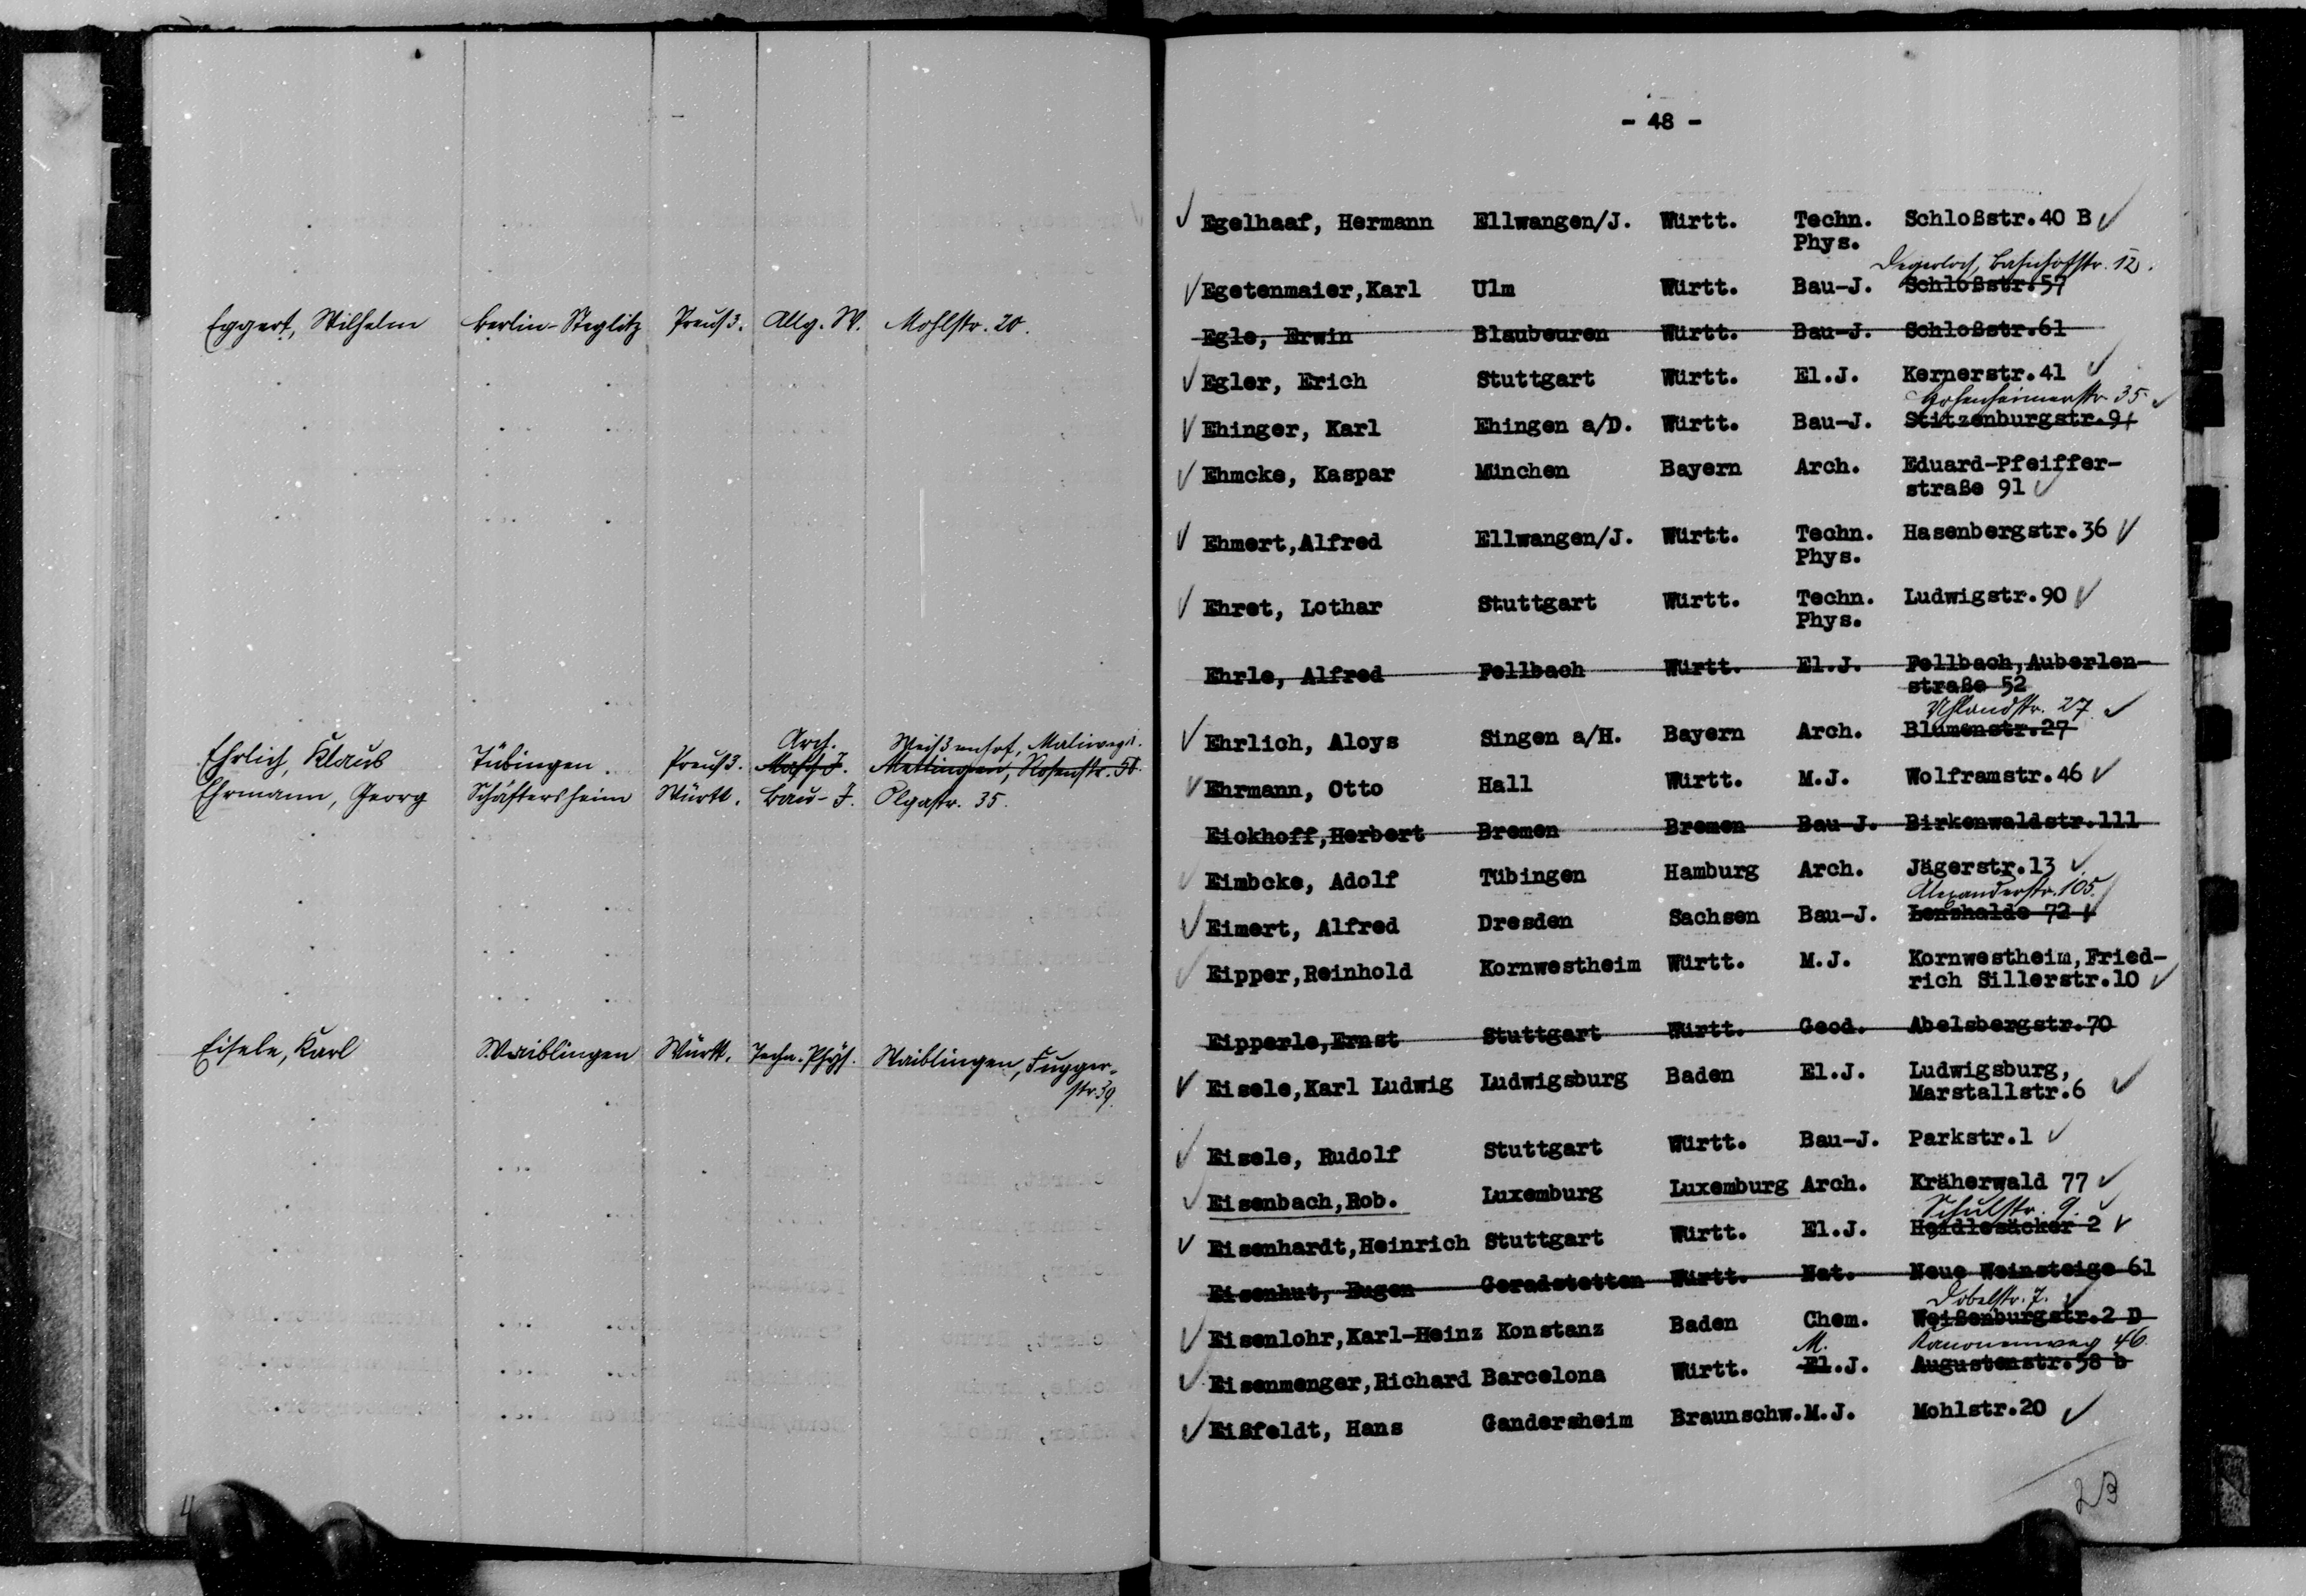 Eggert, Wilhelm Berlin-Steglitz Preuß. Allg. W. Mohlstr. 20.
Arch. Weißenhof,
Ehrlich, Klaus Tübingen. Preuß. Masch. J. Mettingen, Rosenstr.
Ehrmann, Georg Schäftersheim Württ. Bau-J. Olgastr. 35.
Eisele, Karl Waiblingen Württ. Techn. Phys. Waiblingen, Fugger-
str. 39.
- 48 -
Egelhaaf, Hermann Ellwangen/J. Württ. Techn. Schloßstr.40 B
Phys.
Degerloch, Bahnhofstr. 12.
Egetenmaier,Karl Ulm Württ. Bau-J. Schloßstr.57
Egle, Erwin Blaubeuren Württ. Bau-J. Schloßstr.61
Egler, Erich Stuttgart Württ. El.J. Kernerstr.41
Hohenheimerstr. 35
Ehinger, Karl Ehingen a/D. Württ. Bau-J. Stitzenburgstr.9
Ehmcke, Kaspar München Bayern Arch. Eduard-Pfeiffer-
straße 91
Ehmert,Alfred Ellwangen/J. Württ. Techn. Hasenbergstr.36
Phys.
Ehret, Lothar Stuttgart Württ. Techn. Ludwigstr.90
Phys.
Ehrle, Alfred Fellbach Württ. El.J. Fellbach,Auberlen-
straße 52
Uhlandstr. 27
Ehrlich, Aloys Singen a/H. Bayern Arch. Blumenstr.27
Ehrmann, Otto Hall Württ. M.J. Wolframstr.46
Eickhoff,Herbert Bremen Bremen Bau-J. Birkenwaldstr.111
Eimbcke, Adolf Tübingen Hamburg Arch. Jägerstr.13
Alexanderstr. 105.
Eimert, Alfred Dresden Sachsen Bau-J. Lenzhalde 72
Eipper,Reinhold Kornwestheim Württ. M.J. Kornwestheim,Fried-
rich Sillerstr.10
Eipperle,Ernst Stuttgart Württ. Geod. Abelsbergstr.70
Eisele,Karl Ludwig Ludwigsburg Baden El.J. Ludwigsburg,
Marstallstr.6
Eisele, Rudolf Stuttgart Württ. Bau-J. Parkstr.1
Eisenbach,Rob. Luxemburg Luxemburg Arch. Kräherwald 77
Schulstr. 9.
Eisenhardt,Heinrich Stuttgart Württ. El.J. Heidlesäcker 2
Eisenhut, Eugen Geradstetten Württ. Nat. Neue Weinsteige 61
Dobelstr. 7.
Eisenlohr,Karl-Heinz Konstanz Baden Chem. Weißenburgstr.2 D
M. Kanonenweg 46.
Eisenmenger,Richard Barcelona Württ. El.J. Augustenstr.58 b
Eißfeldt, Hans Gandersheim Braunschw. M.J. Mohlstr.20
23